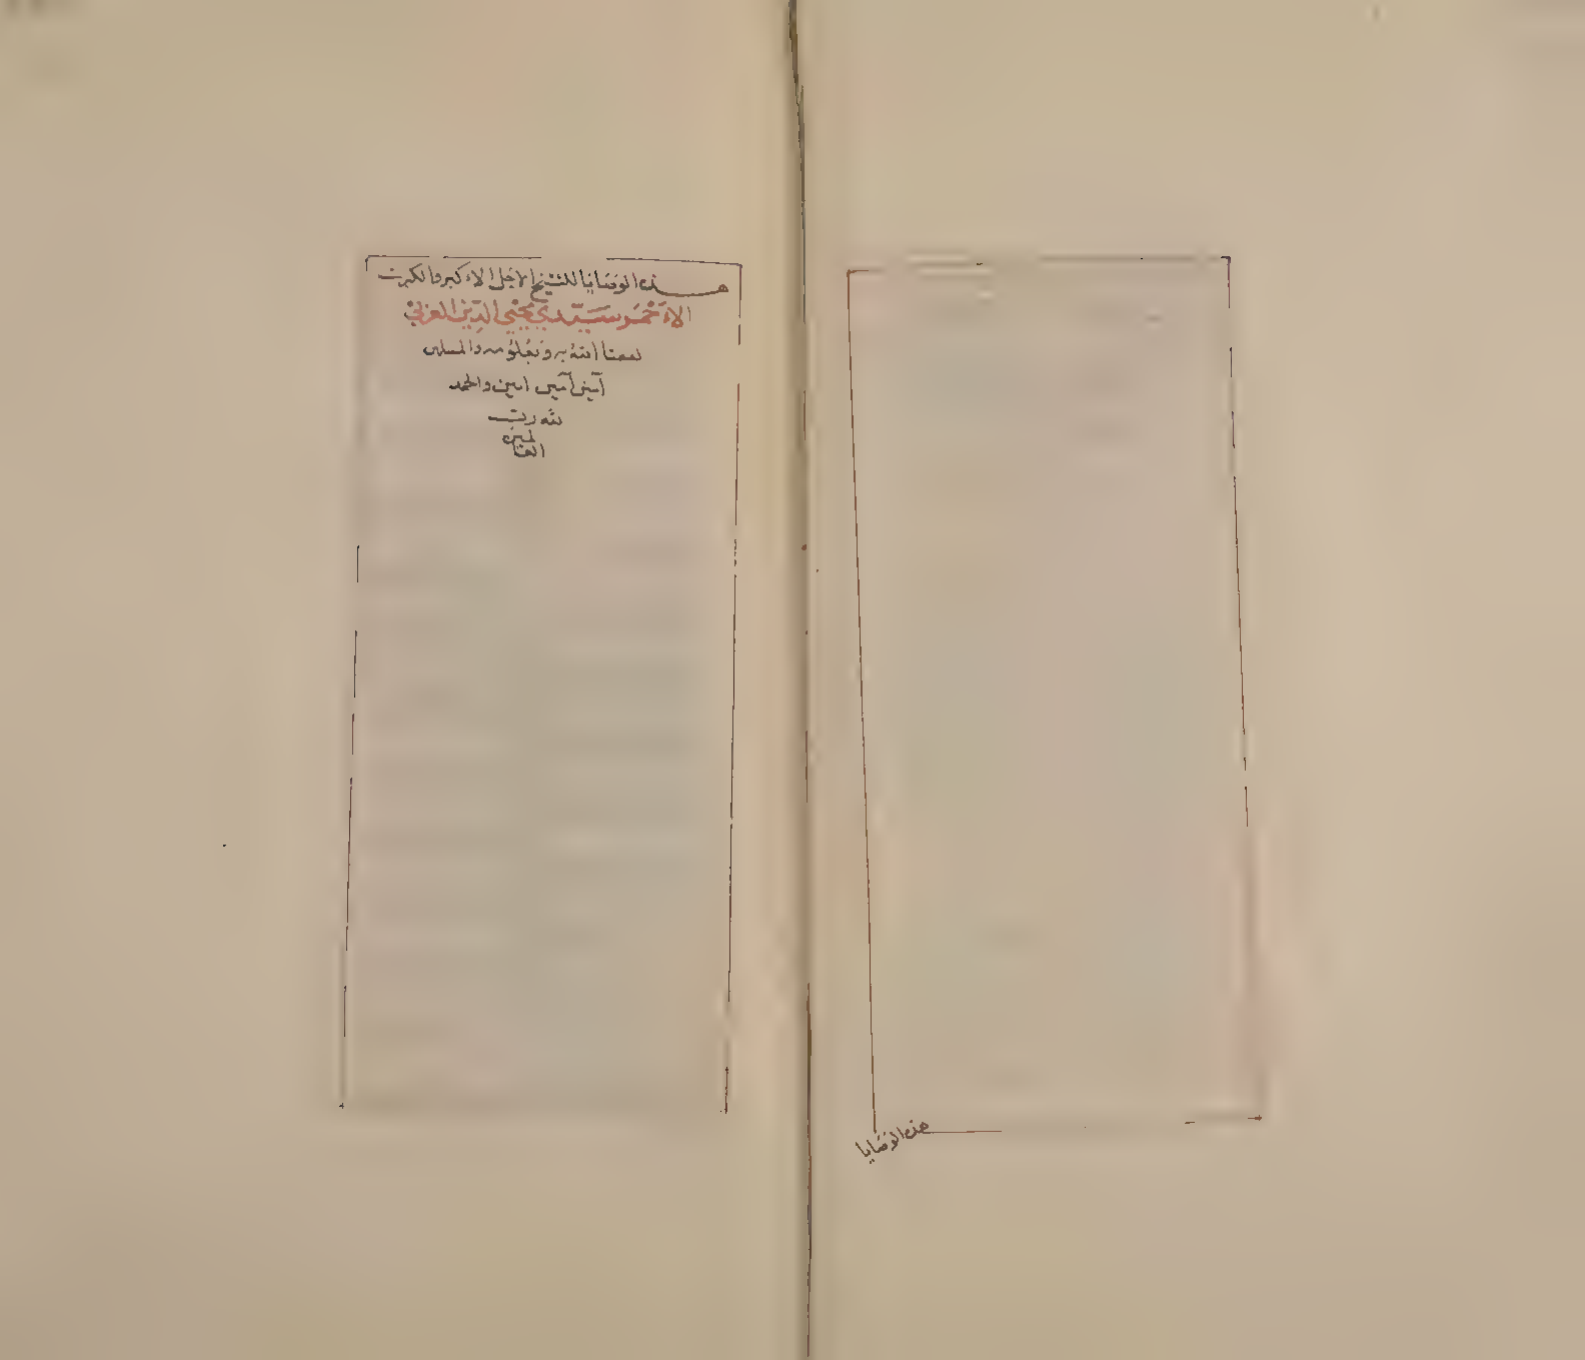 هذه الوصايا
هذه الوصايا للشيخ الاجل الاكبر والكبريت
الاحمر سيدي محيي الدين العربي
نفعنا الله به وبعلومه والمسلمين
آمين آمين امين والحمد
لله رب
العالمين